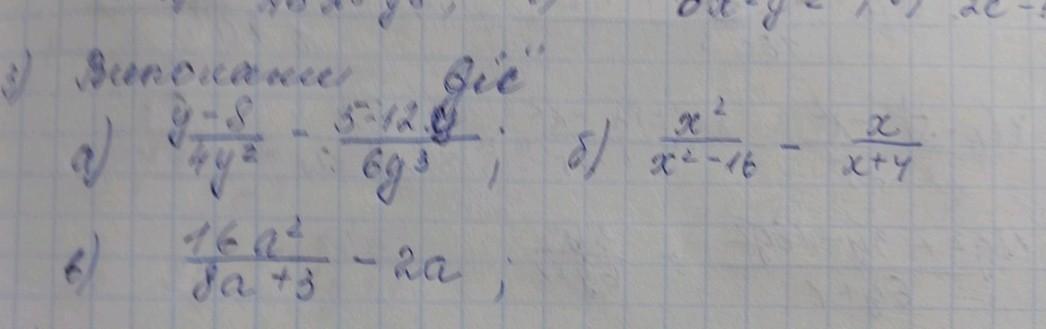 3) Виконати дії
а) \frac{y-8}{4y^2} - \frac{5-12y}{6y^3}; б) \frac{x^2}{x^2-16} - \frac{x}{x+4}
в) \frac{16a^2}{8a+3} - 2a;